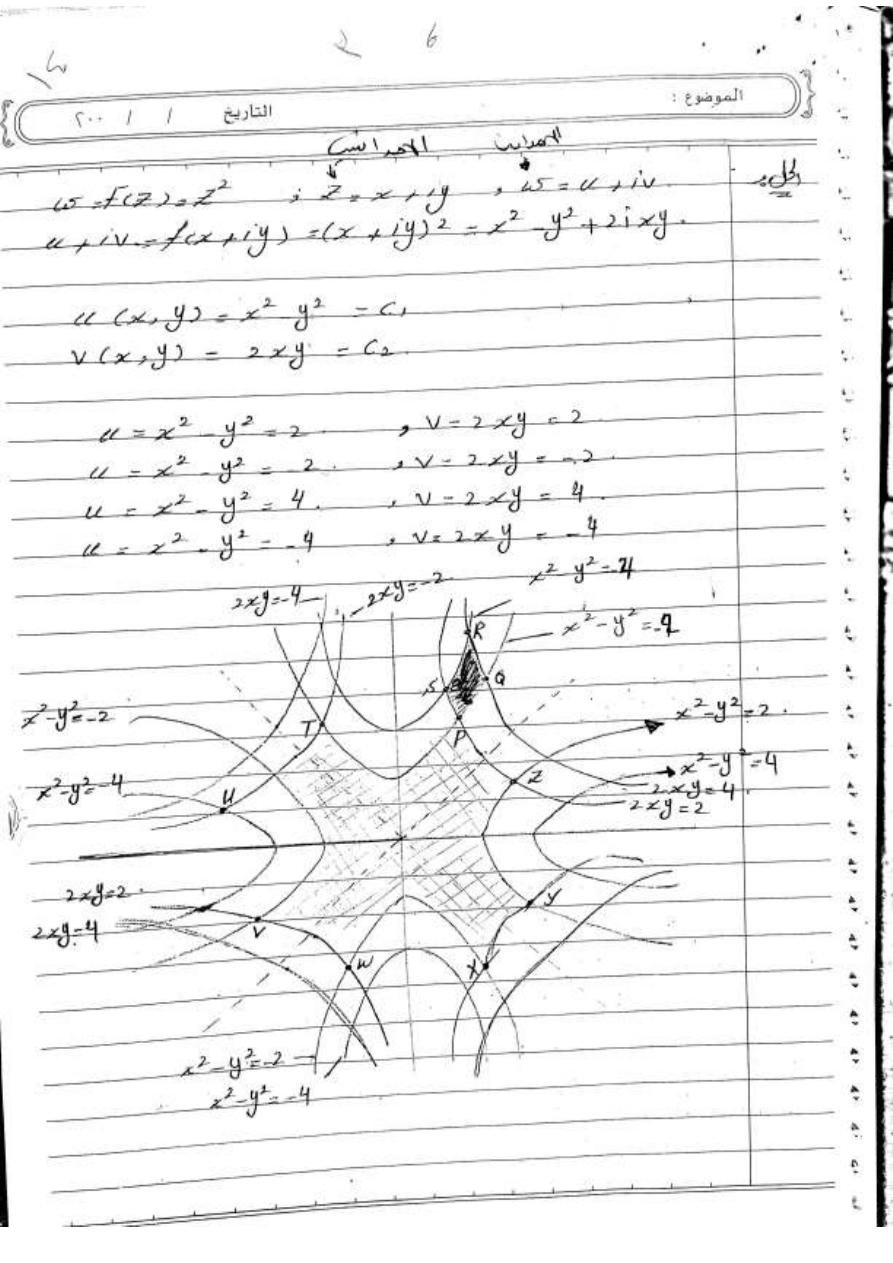 2 6
الموضوع :
التاريخ / / ٢٠٠
الحل:
w = f(z) = z² ; z = x + iy , w = u + iv
u + iv = f(x + iy) = (x + iy)² = x² - y² + 2ixy .
u(x, y) = x² - y² = C₁
v(x, y) = 2xy = C₂
u = x² - y² = 2 , v = 2xy = 2
u = x² - y² = -2 , v = 2xy = -2
u = x² - y² = 4 , v = 2xy = 4
u = x² - y² = -4 , v = 2xy = -4
2xy = -4
2xy = -2
R
S
Q
T
P
x² - y² = -2
x² - y² = 2
x² - y² = -4
U
Z
x² - y² = 4
2xy = 4
2xy = 2
2xy = 2
2xy = 4
V
W
X
Y
x² - y² = -2
x² - y² = -4